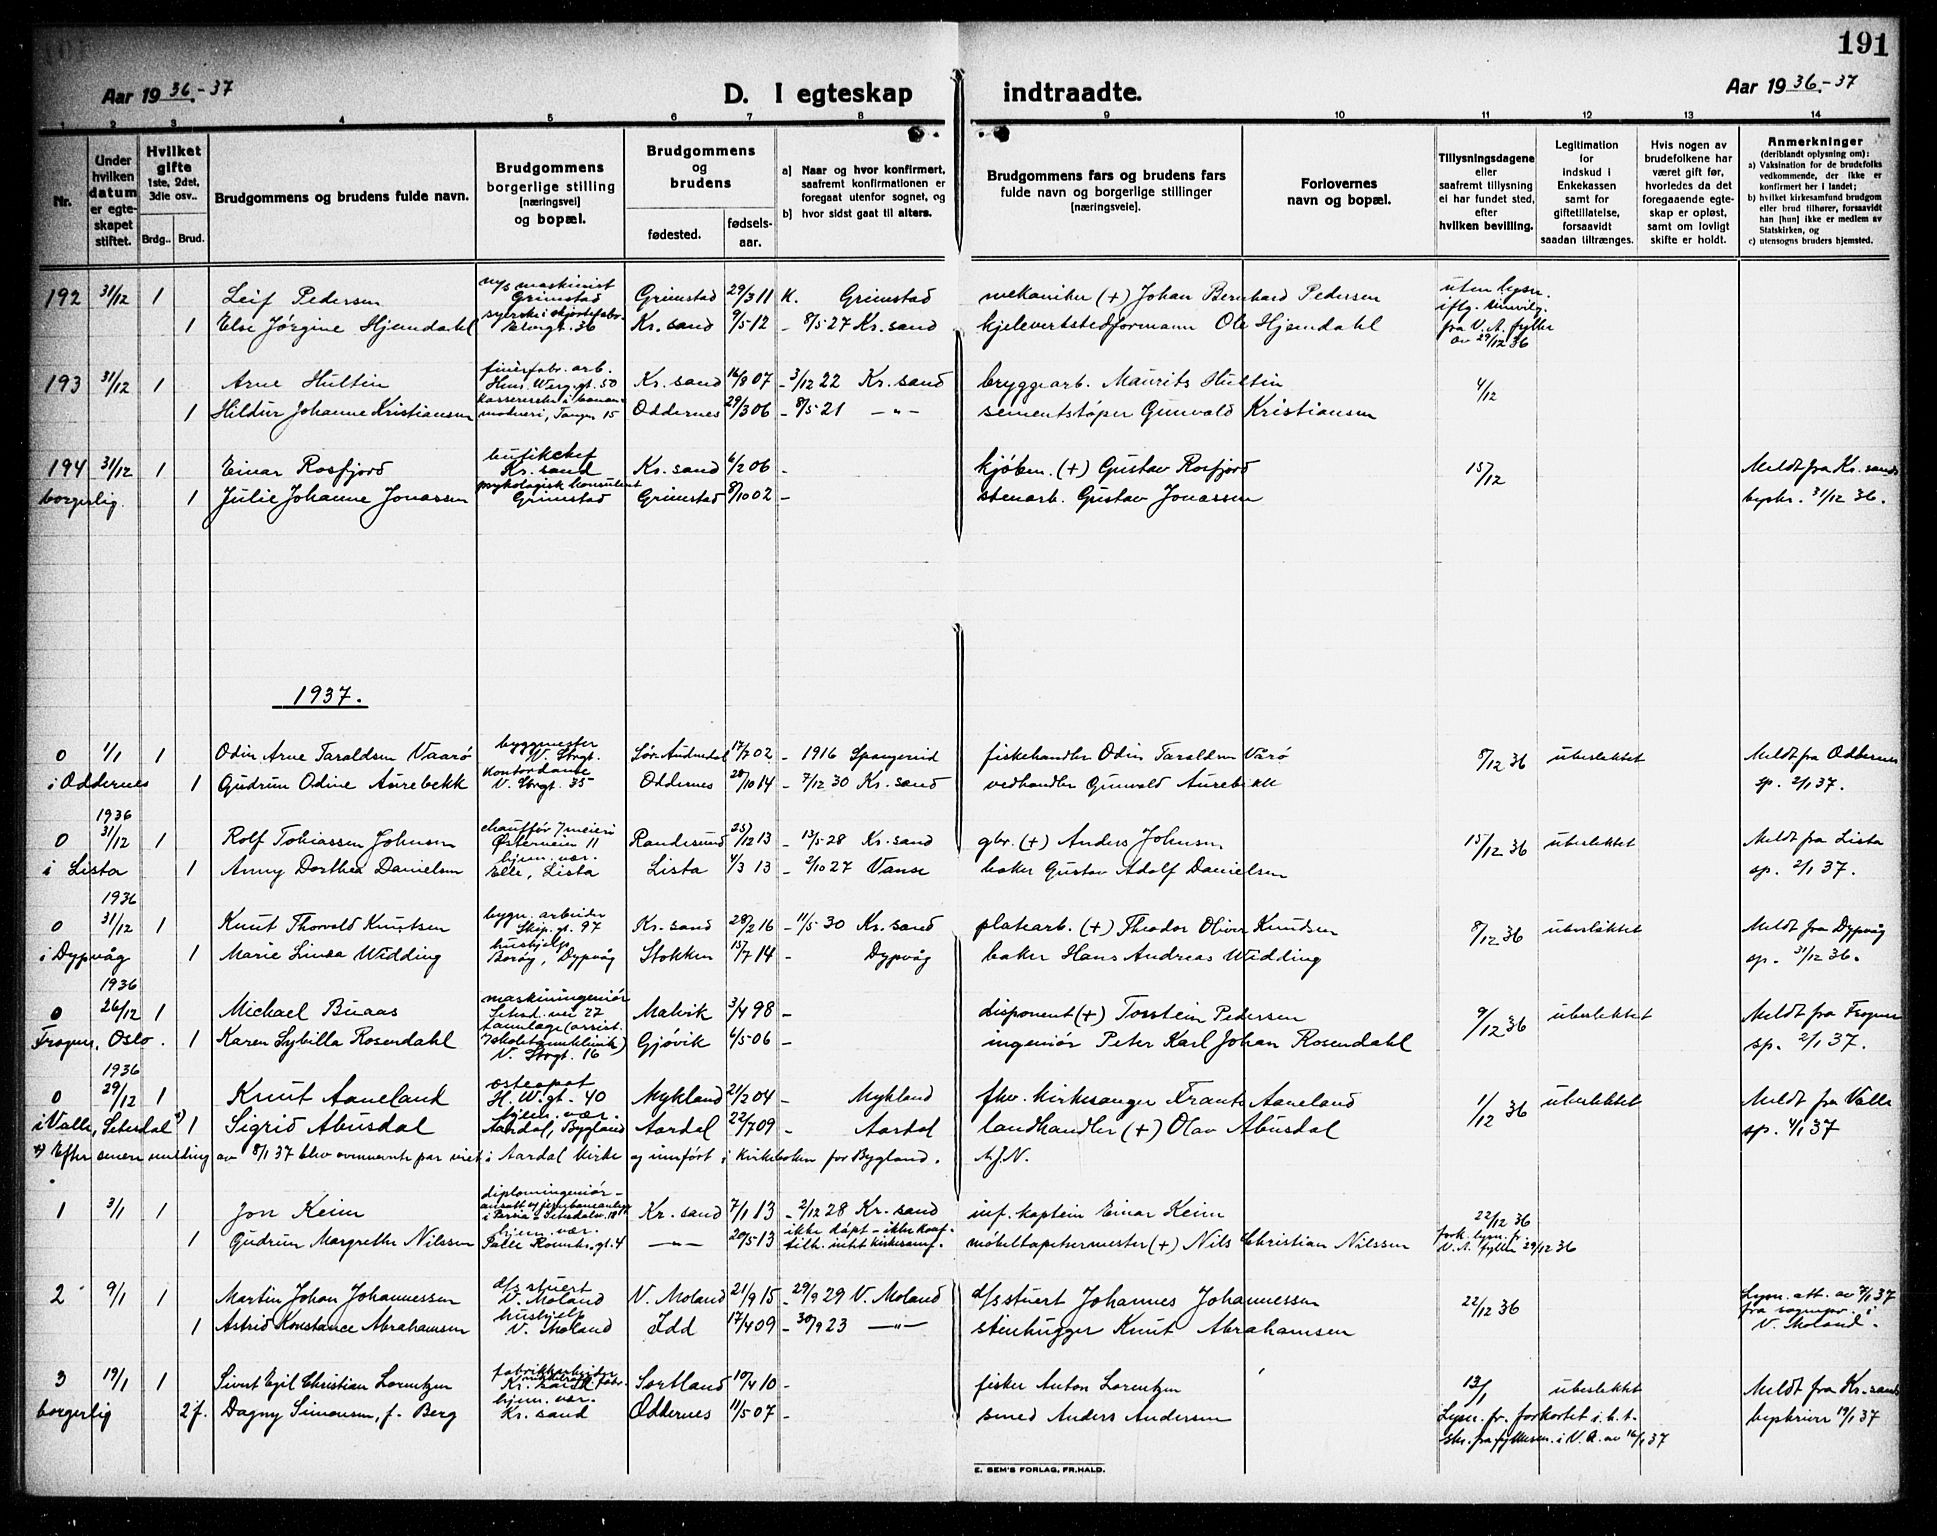 191
Aar 1936-37 D. I egteskap indtraadte. Aar 1936-37
1 2 3 4 5 6 7 8 9 10 11 12 13 14
Nr.
Under hvilken datum er egte-skapet stiftet.
Hvilket gifte 1ste, 2det, 3die osv..
Brdg.. Brud.
Brudgommens og brudens fulde navn.
Brudgommens borgerlige stilling [næringsvei] og bopæl.
Brudgommens og brudens
fødested. fødsels-aar.
a) Naar og hvor konfirmert, saafremt konfirmationen er foregaat utenfor sognet, og
b) hvor sidst gaat til alters.
Brudgommens fars og brudens fars fulde navn og borgerlige stillinger [næringsveie].
Forlovernes navn og bopæl.
Tillysningsdagene eller saafremt tillysning ei har fundet sted, efter hvilken bevilling.
Legitimation for indskud i Enkekassen samt for giftetillatelse, forsaavidt saadan tiltrænges.
Hvis nogen av brudefolkene har været gift før, hvorledes da det foregaaende egte-skap er opløst, samt om lovligt skifte er holdt.
Anmerkninger (deriblandt oplysning om):
a) Vaksination for de brudefolks vedkommende, der ikke er konfirmert her i landet;
b) hvilket kirkesamfund brudgom eller brud tilhører, forsaavidt han [hun] ikke er medlem av Statskirken, og
c) utensogns bruders hjemsted.
192 31/12 1 Leif Pedersen m/s maskinist Grimstad Grimstad 29/3 11 K. Grimstad mekaniker (+) Johan Bernhard Pedersen uten lysn. iflg.
1 Else Jørgine Hjemdahl syerske i skjortefabr. 36 Kr. sand 9/5 12 - 8/5 27 Kr. sand Ole Hjemdahl fra V. A. fylke av 29/12 36
193 31/12 1 Arne Hultin finerfabr. arb. Hen. Werg. gt. 50 Kr. sand 16/8 07 - 3/12 22 Kr. sand bryggearb. Maurits Hultin 4/12
1 Hildur Johanne Kristiansen 15 Oddernes 29/3 06 - 8/5 21 -"- sementstøper Gunvald Kristiansen
194 31/12 1 Einar Rosfjord butikchef Kr. sand Kr. sand 6/2 06 - kjøbm. (+) Gustav Rosfjord 15/12 Meldt fra Kr. sands
borgerlig. 1 Julie Johanne Jonassen psykologisk konsulent Grimstad Grimstad 8/10 02 - stenarb. Gustav Jonassen byskr. 31/12 36.
1937.
0 1/1 1 Odin Arne Taraldsen Vaarø byggmester V. Strgt. Sør. Audnedal 17/7 02 - 1916 Spangereid fiskehandler Odin Taraldsen Vårø 8/12 36 ubeslektet Meldt fra Oddernes
i Oddernes 1 Gudrun Odine Aurebekk kontordame V. Strgt. 35 Oddernes 28/10 14 - 7/12 30 Kr. sand vedhandler Gunvald Aurebekk sp. 2/1 37.
1936
0 31/12 1 Rolf Tobiassen Johnsen chauffør i meieri Østerveien 11 Randesund 25/12 13 - 13/5 28 Kr. sand gbr. (+) Anders Johnsen 15/12 36 ubeslektet Meldt fra Lista
i Lista 1 Anny Dorthea Danielsen hjem. vær. Elle, Lista Lista 4/3 13 - 2/10 27 Vanse baker Gustav Adolf Danielsen sp. 2/1 37.
1936
0 31/12 1 Knut Thorvald Knutsen bygn. arbeider Skip. gt. 97 Kr. sand 28/2 16 - 11/5 30 Kr. sand platearb. (+) Theodor Oliver Knudsen 8/12 36 ubeslektet Meldt fra Dypvåg
i Dypvåg 1 Marie Linea Widding hushjelp Borøy, Dypvåg Stokken 15/7 14 - Dypvåg baker Hans Andreas Widding sp. 31/12 36.
1936
0 26/12 1 Michael Buaas maskiningeniør Setesd. vei 27 Malvik 3/4 98 - disponent (+) Torstein Pedersen 9/12 36 ubeslektet Meldt fra Frogner
Frogner, Oslo. 1 Karen Sybilla Rosendahl tannlæge (assist. i skoletannklinik) V. Strgt. 16 Gjøvik 6/5 06 - ingeniør Peter Karl Johan Rosendahl sp. 2/1 37.
1936
0 29/12 1 Knut Aaneland osteopat H. W. gt. 40 Mykland 21/2 04 - Mykland fhv. kirkesanger Frants Aaneland 1/12 36 ubeslektet Meldt fra Valle
i Valle, Setesdal x) 1 Sigrid Abusdal hjem. vær. Aardal, Bygland Aardal 22/7 09 - Aardal landhandler (+) Olav Abusdal sp. 4/1 37
x) Efter senere melding av 8/1 37 blev ovennevnte par viet i Aardal kirke og innført i kirkeboken for Bygland.
1 3/1 1 Jon Keim diplomingeniør - ansatt ved jernbaneanlegg i Persia Kr. sand 7/1 13 - 2/12 28 Kr. sand inf. kaptein Einar Keim 22/12 36
1 Gudrun Margrethe Nilssen hjem. vær. gt. 4 -"- 20/5 13 ikke døpt - ikke konf. tilh. intet kirkesamf. møbeltapetserermester (+) Nils Christian Nilssen fork. lysn. fr. V. A. fylke 29/12 36
2 9/1 1 Martin Johan Johannessen d/s stuert V. Moland V. Moland 21/9 15 - 29/9 29 V. Moland d/s stuert Johannes Johannessen 22/12 36 Lysn. att. av 7/1 37
1 Astrid Konstance Abrahamsen hushjelp V. Moland Idd 17/4 09 - 30/9 23 -"- stenhugger Knut Abrahamsen fra sognepr. i V. Moland.
3 19/1 1 Sivert Egil Christian Lorentzen fabrikkarbeider Kr. sand Sortland 10/4 10 - fisker Anton Lorentzen 13/1 ubeslektet Meldt fra Kr. sands
borgerlig 2 f. Dagny Simonsen, f. Berg hjem. vær. Kr. sand Oddernes 11/5 07 - smed Anders Andersen Lysn. fr. forkortet i h. t. skr. fra fylkesm. i V. A. av 16/1 37 byskriver 19/1 37
E. SEM'S FORLAG, FR.HALD.